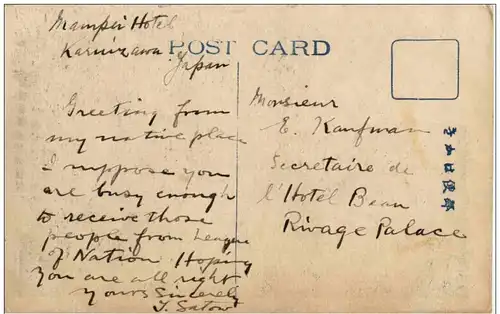 Mampei Hotel
Karuizawa
Japan
POST CARD
Greeting from
my native place
I suppose you
are busy enough
to receive those
people from League
of Nation Hoping
you are all right
Yours Sincerely
Y. Satow
Monsieur
E. Kaufman
Secretaire de
l'Hotel Beau
Rivage Palace
きかは便郵